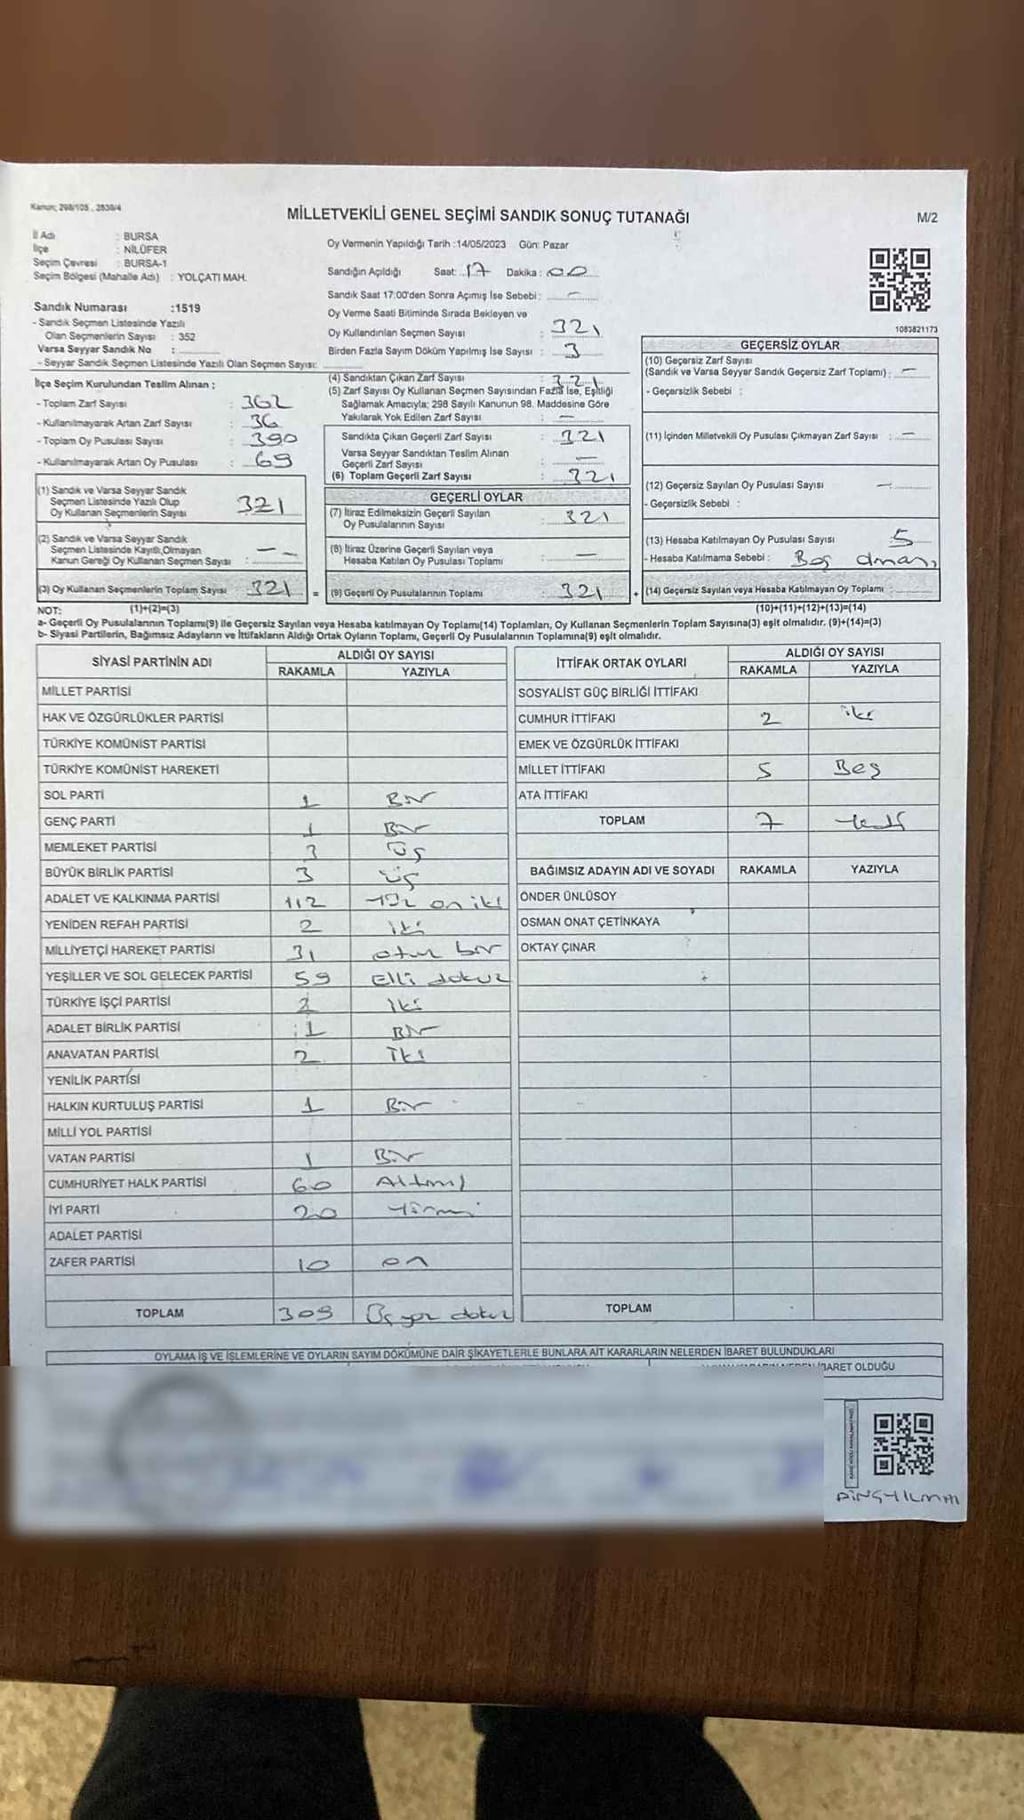 Kanun; 298/105 , 2839/4
MİLLETVEKİLİ GENEL SEÇİMİ SANDIK SONUÇ TUTANAĞI
M/2
İl Adı : BURSA
İlçe : NİLÜFER
Seçim Çevresi : BURSA-1
Seçim Bölgesi (Mahalle Adı) : YOLÇATI MAH.
Sandık Numarası :1519
- Sandık Seçmen Listesinde Yazılı
Olan Seçmenlerin Sayısı : 352
Varsa Seyyar Sandık No :
- Seyyar Sandık Seçmen Listesinde Yazılı Olan Seçmen Sayısı:
Oy Vermenin Yapıldığı Tarih :14/05/2023 Gün: Pazar
Sandığın Açıldığı Saat: 17 Dakika : 00
Sandık Saat 17:00'den Sonra Açımış İse Sebebi : –
Oy Verme Saati Bitiminde Sırada Bekleyen ve
Oy Kullandırılan Seçmen Sayısı : 321
Birden Fazla Sayım Döküm Yapılmış İse Sayısı : 3
1083821173
İlçe Seçim Kurulundan Teslim Alınan :
- Toplam Zarf Sayısı : 362
- Kullanılmayarak Artan Zarf Sayısı : 36
- Toplam Oy Pusulası Sayısı : 390
- Kullanılmayarak Artan Oy Pusulası : 69
(1) Sandık ve Varsa Seyyar Sandık
Seçmen Listesinde Yazılı Olup
Oy Kullanan Seçmenlerin Sayısı 321
(2) Sandık ve Varsa Seyyar Sandık
Seçmen Listesinde Kayıtlı Olmayan
Kanun Gereği Oy Kullanan Seçmen Sayısı : – –
(3) Oy Kullanan Seçmenlerin Toplam Sayısı 321 =
(4) Sandıktan Çıkan Zarf Sayısı : 321
(5) Zarf Sayısı Oy Kullanan Seçmen Sayısından Fazla İse, Eşitliği
Sağlamak Amacıyla; 298 Sayılı Kanunun 98. Maddesine Göre
Yakılarak Yok Edilen Zarf Sayısı : –
Sandıkta Çıkan Geçerli Zarf Sayısı : 321
Varsa Seyyar Sandıktan Teslim Alınan
Geçerli Zarf Sayısı : –
(6) Toplam Geçerli Zarf Sayısı : 321
GEÇERLİ OYLAR
(7) İtiraz Edilmeksizin Geçerli Sayılan
Oy Pusulalarının Sayısı : 321
(8) İtiraz Üzerine Geçerli Sayılan veya
Hesaba Katılan Oy Pusulası Toplamı : –
(9) Geçerli Oy Pusulalarının Toplamı : 321 +
GEÇERSİZ OYLAR
(10) Geçersiz Zarf Sayısı
(Sandık ve Varsa Seyyar Sandık Geçersiz Zarf Toplamı) : –
- Geçersizlik Sebebi :
(11) İçinden Milletvekili Oy Pusulası Çıkmayan Zarf Sayısı : –
(12) Geçersiz Sayılan Oy Pusulası Sayısı –
- Geçersizlik Sebebi :
(13) Hesaba Katılmayan Oy Pusulası Sayısı 5
- Hesaba Katılmama Sebebi : Boş
(14) Geçersiz Sayılan veya Hesaba Katılmayan Oy Toplamı :
NOT: (1)+(2)=(3) (10)+(11)+(12)+(13)=(14)
a- Geçerli Oy Pusulalarının Toplamı(9) ile Geçersiz Sayılan veya Hesaba katılmayan Oy Toplamı(14) Toplamları, Oy Kullanan Seçmenlerin Toplam Sayısına(3) eşit olmalıdır. (9)+(14)=(3)
b- Siyasi Partilerin, Bağımsız Adayların ve İttifakların Aldığı Ortak Oyların Toplamı, Geçerli Oy Pusulalarının Toplamına(9) eşit olmalıdır.
SİYASİ PARTİNİN ADI ALDIĞI OY SAYISI
RAKAMLA YAZIYLA
MİLLET PARTİSİ
HAK VE ÖZGÜRLÜKLER PARTİSİ
TÜRKİYE KOMÜNİST PARTİSİ
TÜRKİYE KOMÜNİST HAREKETİ
SOL PARTİ 1 Bir
GENÇ PARTİ 1 Bir
MEMLEKET PARTİSİ 3 Üç
BÜYÜK BİRLİK PARTİSİ 3 üç
ADALET VE KALKINMA PARTİSİ 112 Yüz on iki
YENİDEN REFAH PARTİSİ 2 iki
MİLLİYETÇİ HAREKET PARTİSİ 31 otuz bir
YEŞİLLER VE SOL GELECEK PARTİSİ 59 Elli dokuz
TÜRKİYE İŞÇİ PARTİSİ 2 iki
ADALET BİRLİK PARTİSİ 1 Bir
ANAVATAN PARTİSİ 2 İki
YENİLİK PARTİSİ
HALKIN KURTULUŞ PARTİSİ 1 Bir
MİLLİ YOL PARTİSİ
VATAN PARTİSİ 1 Bir
CUMHURİYET HALK PARTİSİ 60 Altmış
İYİ PARTİ 20 Yirmi
ADALET PARTİSİ
ZAFER PARTİSİ 10 on
TOPLAM 309 Üç yüz dokuz
İTTİFAK ORTAK OYLARI ALDIĞI OY SAYISI
RAKAMLA YAZIYLA
SOSYALİST GÜÇ BİRLİĞİ İTTİFAKI
CUMHUR İTTİFAKI 2 iki
EMEK VE ÖZGÜRLÜK İTTİFAKI
MİLLET İTTİFAKI 5 Beş
ATA İTTİFAKI
TOPLAM 7 Yedi
BAĞIMSIZ ADAYIN ADI VE SOYADI RAKAMLA YAZIYLA
ÖNDER ÜNLÜSOY
OSMAN ONAT ÇETİNKAYA
OKTAY ÇINAR
TOPLAM
OYLAMA İŞ VE İŞLEMLERİNE VE OYLARIN SAYIM DÖKÜMÜNE DAİR ŞİKAYETLERLE BUNLARA AİT KARARLARIN NELERDEN İBARET BULUNDUKLARI
İBARET OLDUĞU